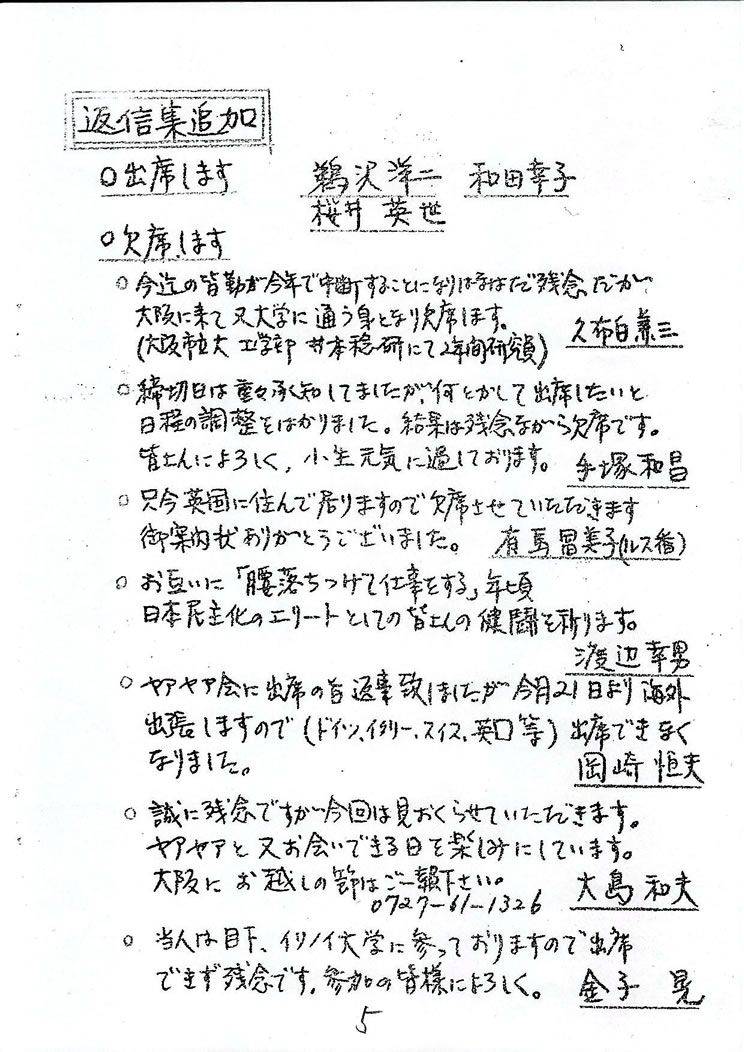 返信集追加
○出席します 鵜沢洋二 和田幸子
桜井 英世
○欠席します
○今迄の皆勤が今年で中断することになりはなはだ残念だが、
大阪に来て又大学に通う身となり欠席します。
(大阪市立大 工学部 井本稔研にて2年間研究員) 久布白兼三
○締切日は重々承知してましたが、何とかして出席したいと
日程の調整をはかりました。結果は残念ながら欠席です。
皆さんによろしく、小生元気に過しております。 手塚和昌
○只今英国に住んで居りますので欠席させていただきます
御案内状ありがとうございました。 有馬冨美子(ルス番)
○お互いに「腰落ちつけて仕事をする」年頃
日本民主化のエリートとしての皆さんの健闘を祈ります。
渡辺幸男
○ヤアヤア会に出席の旨返事致しましたが今月21日より海外
出張しますので(ドイツ、イタリー、スイス、英口等)出席できなく
なりました。 岡崎恒夫
○誠に残念ですが今回は見おくらせていただきます。
ヤアヤアと又お会いできる日を楽しみにしています。
大阪にお越しの節はご一報下さい。
0727-61-1326 大島和夫
○当人は目下、イリノイ大学に参っておりますので出席
できず残念です。参加の皆様によろしく。 金子 晃
5